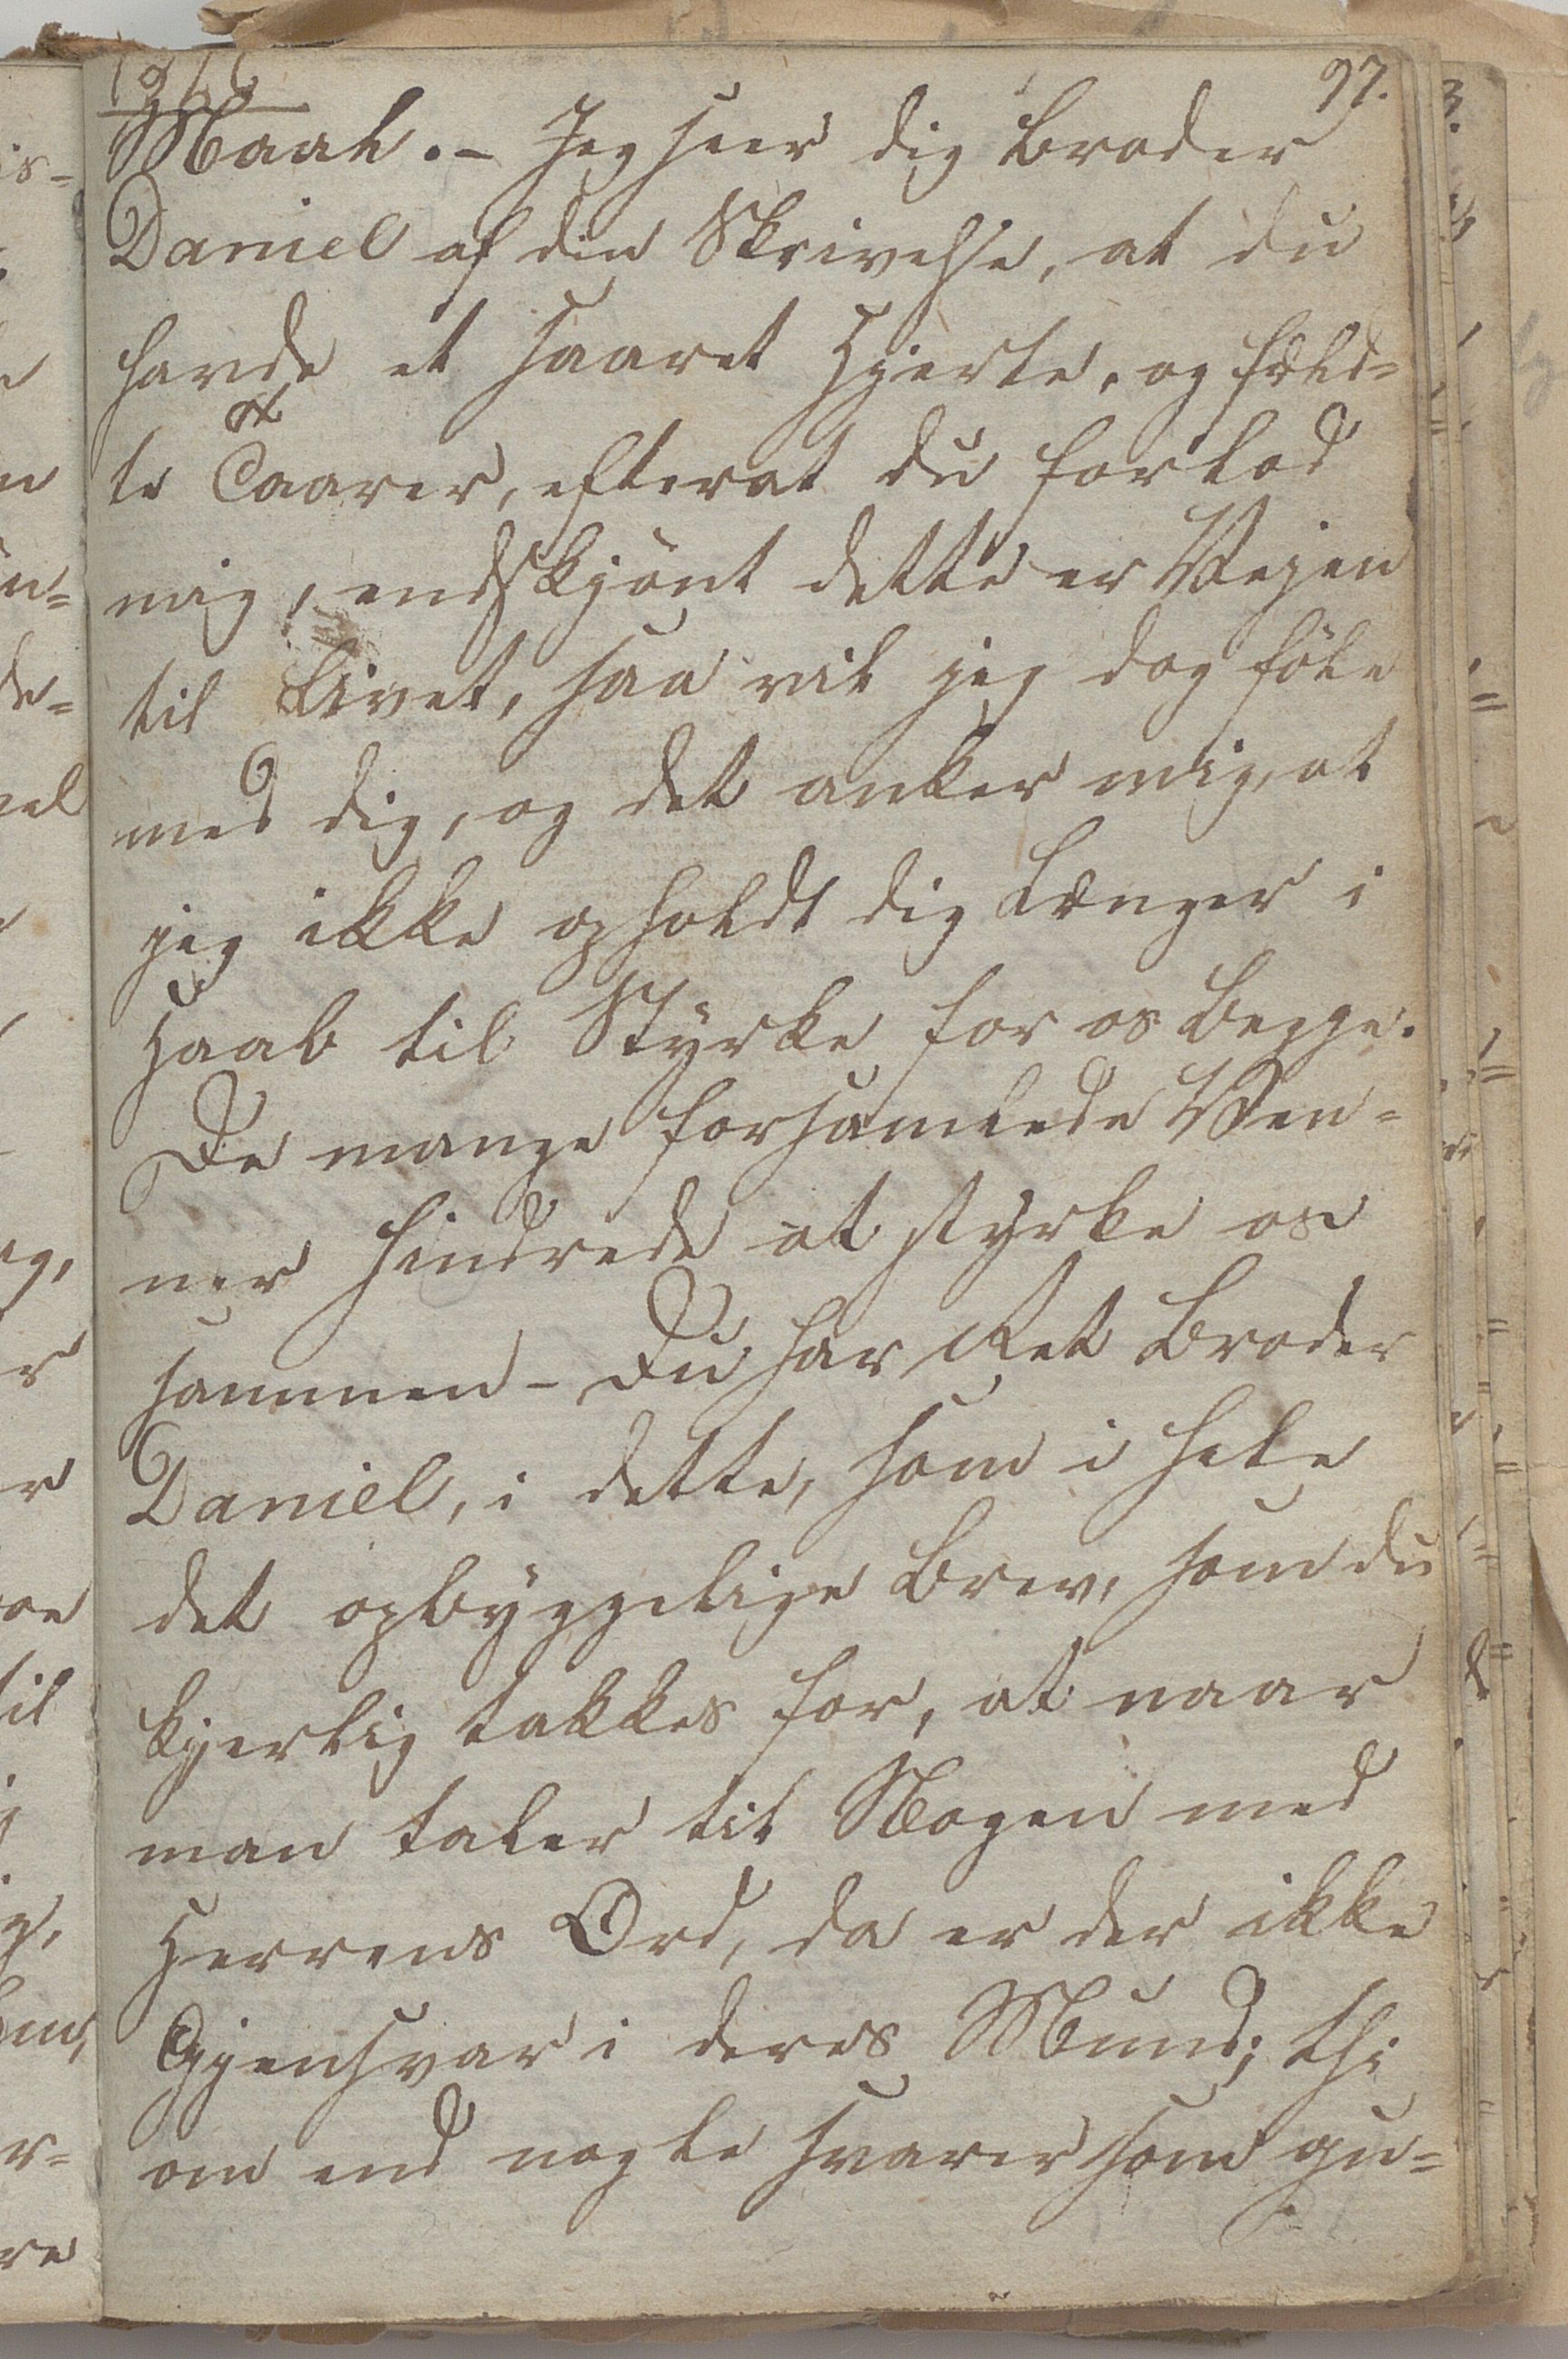 97.
Maal. - Jeg seer dig Broder
Daniel af din Skrivelse, at du
havde et saaret Hjerte, og fæld=
te Taarer, efterat du forlod
mig, endskjönt dette er Vejen
til Livet, saa vil jeg dog föle
med dig, og det anker mig, at
jeg ikke opholdt dig længer i
Haab til Styrke for os begge.
De mange forsamlede Ven=
ner hindrede at styrke os
sammen - Du har Ret Broder
Daniel, i dette, som i hele
det opbyggelige Brev, som du
kjerlig takkes for, at naar
man taler til Nogen med
Herrens Ord, da er der ikke
Gjensvar i deres Mund; thi
om end nogle svarer som gu=